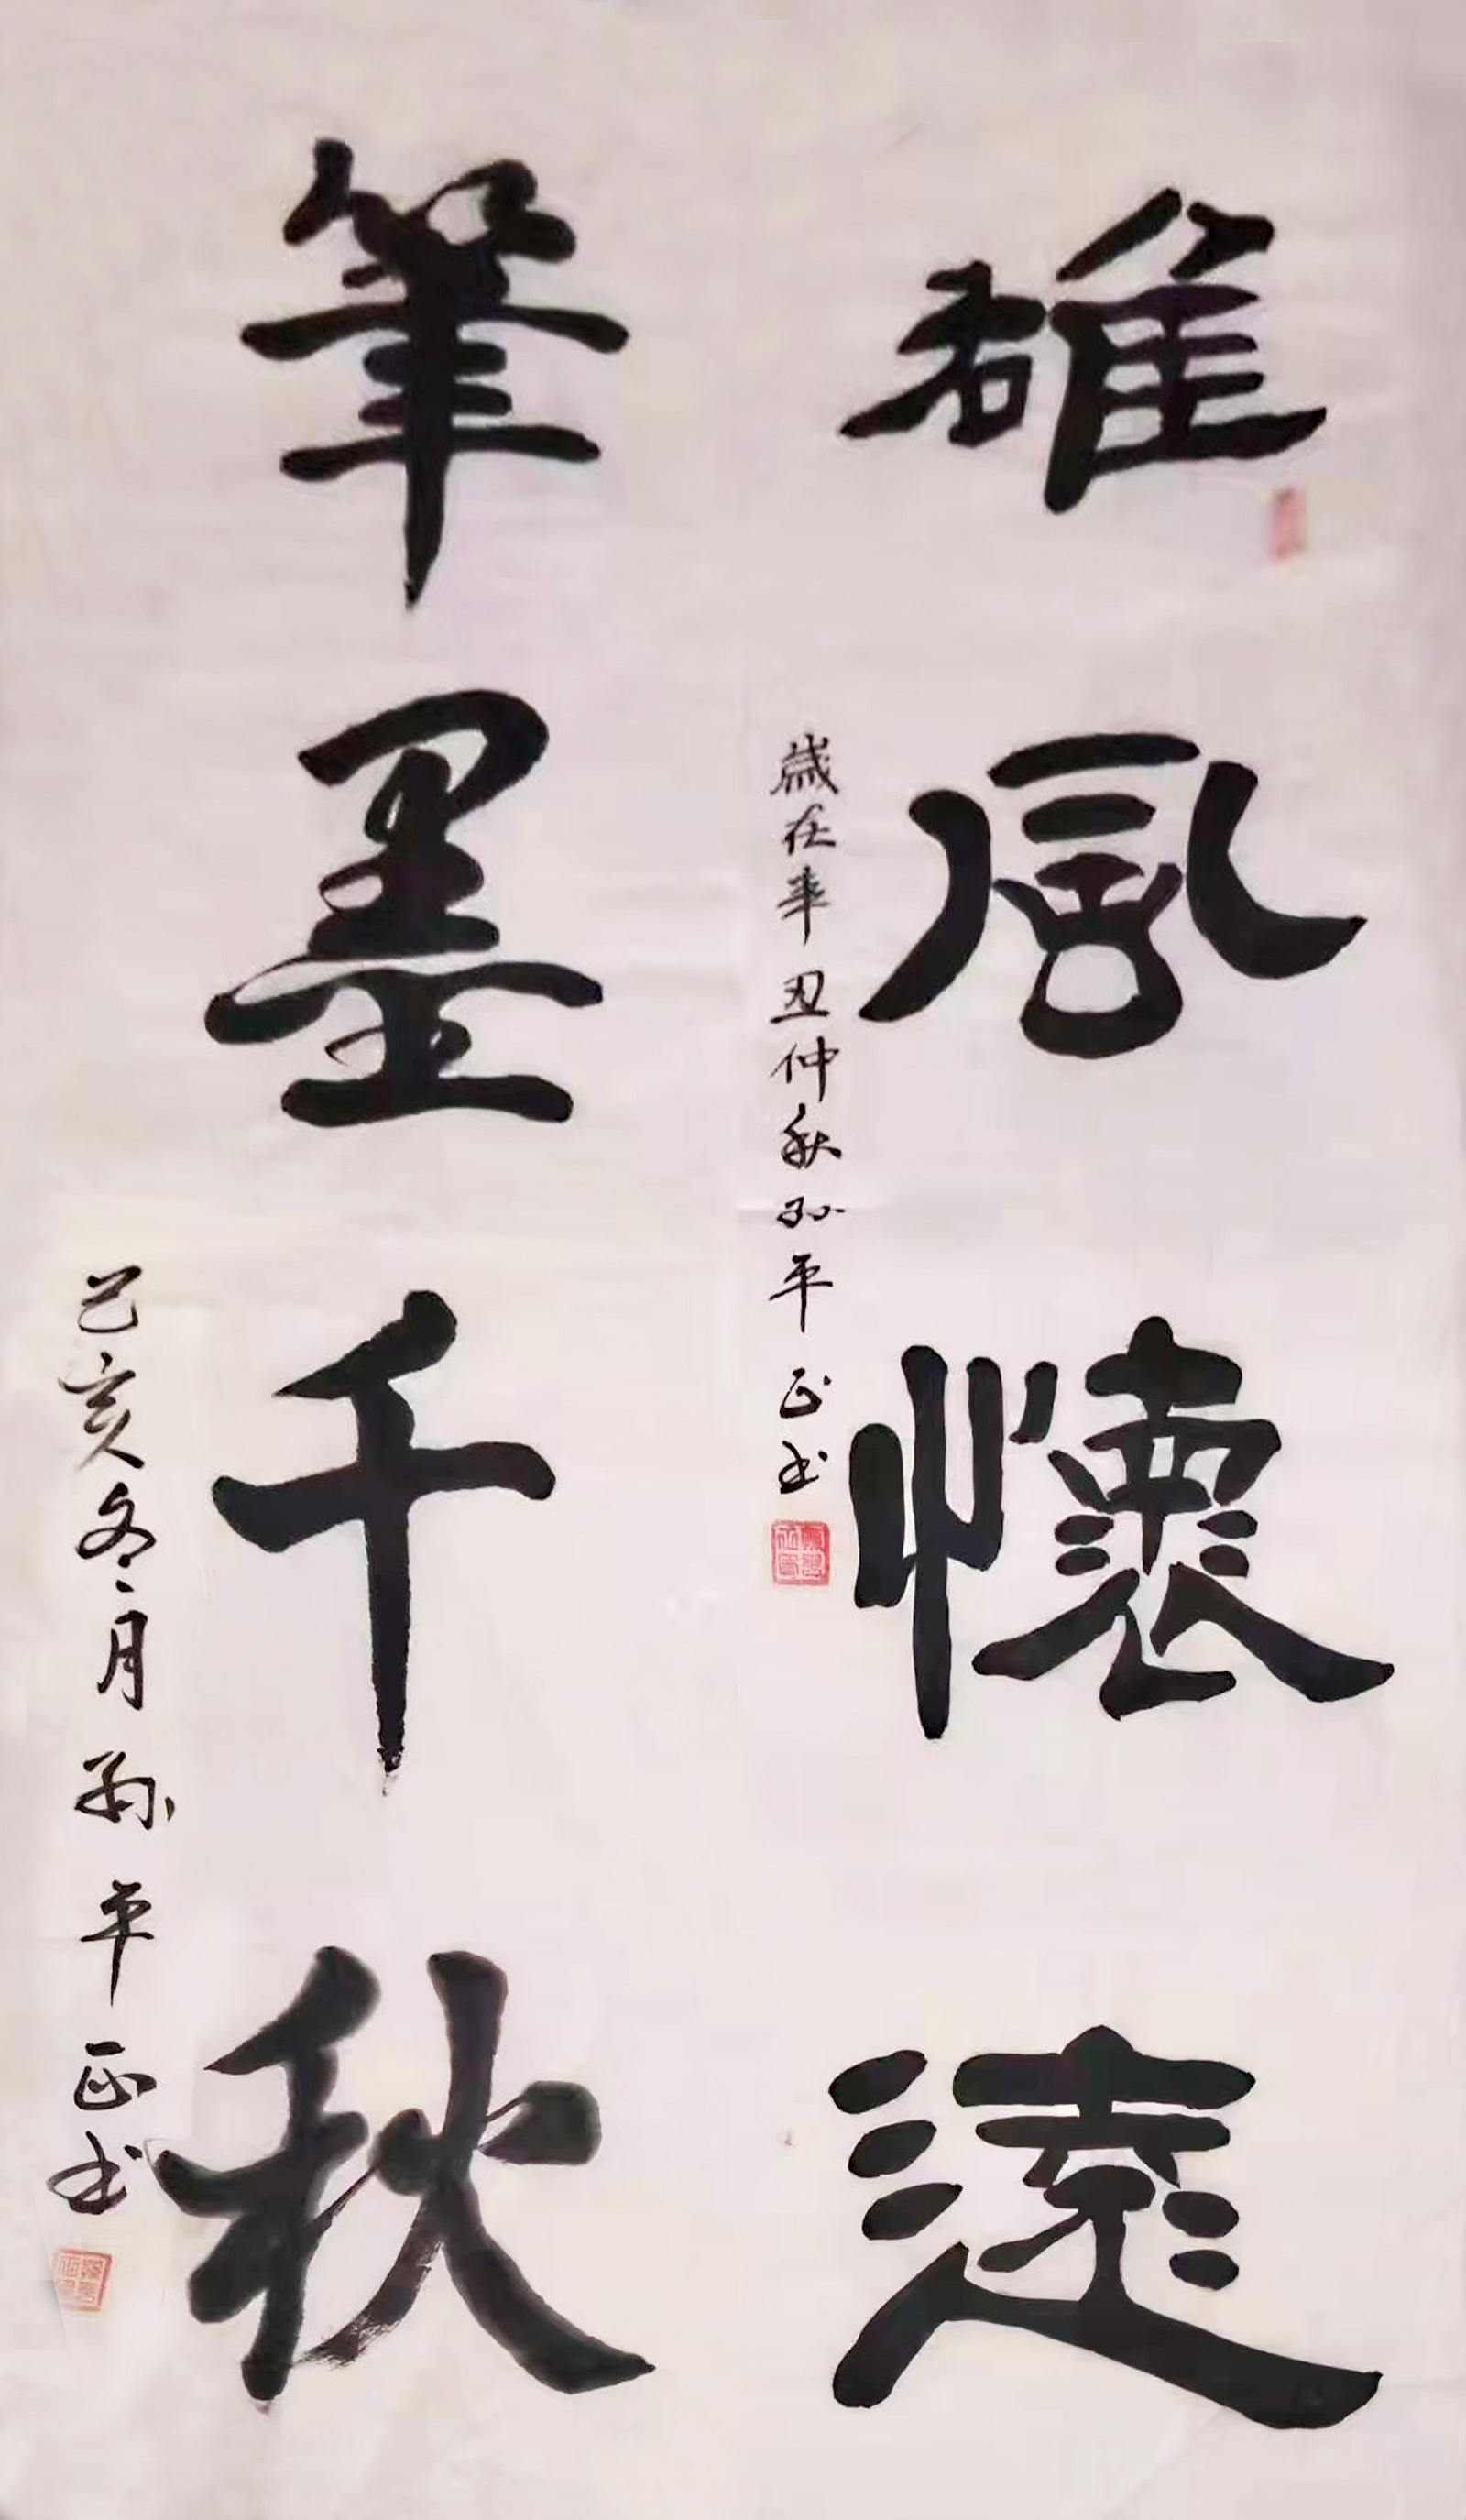 雄風懷遠
歲在辛丑仲秋孫平正书
筆墨千秋
己亥冬月孫平正书